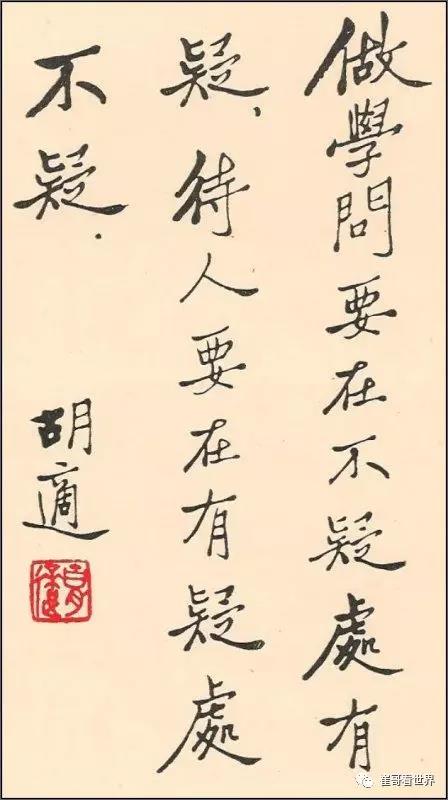 做學問要在不疑處有
疑，待人要在有疑處
不疑．
胡適
崔哥看世界